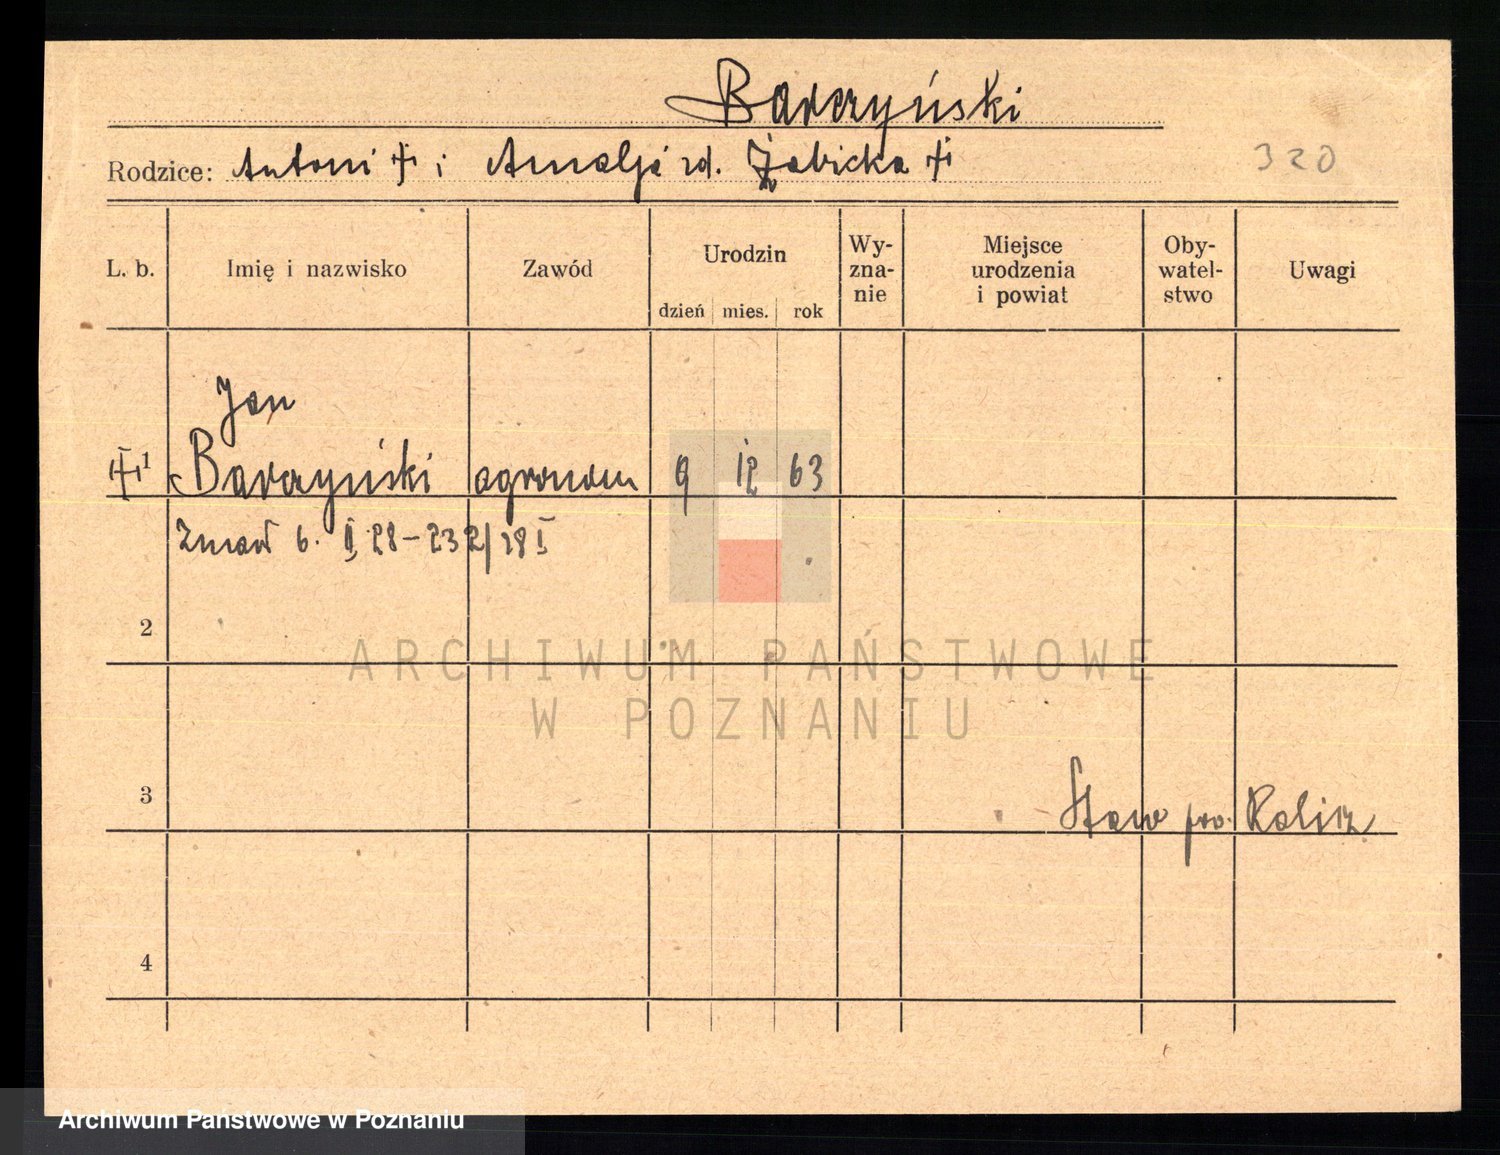 Barczyński
Rodzice: Antoni i Amalja zd. Żabicka
320
L. b. Imię i nazwisko Zawód Urodzin dzień mies. rok Wy-zna-nie Miejsce urodzenia i powiat Oby-watel-stwo Uwagi
Jan
1 Barczyński agronom 9 12 63
Zmarł 6. II 28 – 232/28 I
2
ARCHIWUM PAŃSTWOWE
W POZNANIU
3 Staw pow. Kalisz
4
Archiwum Państwowe w Poznaniu